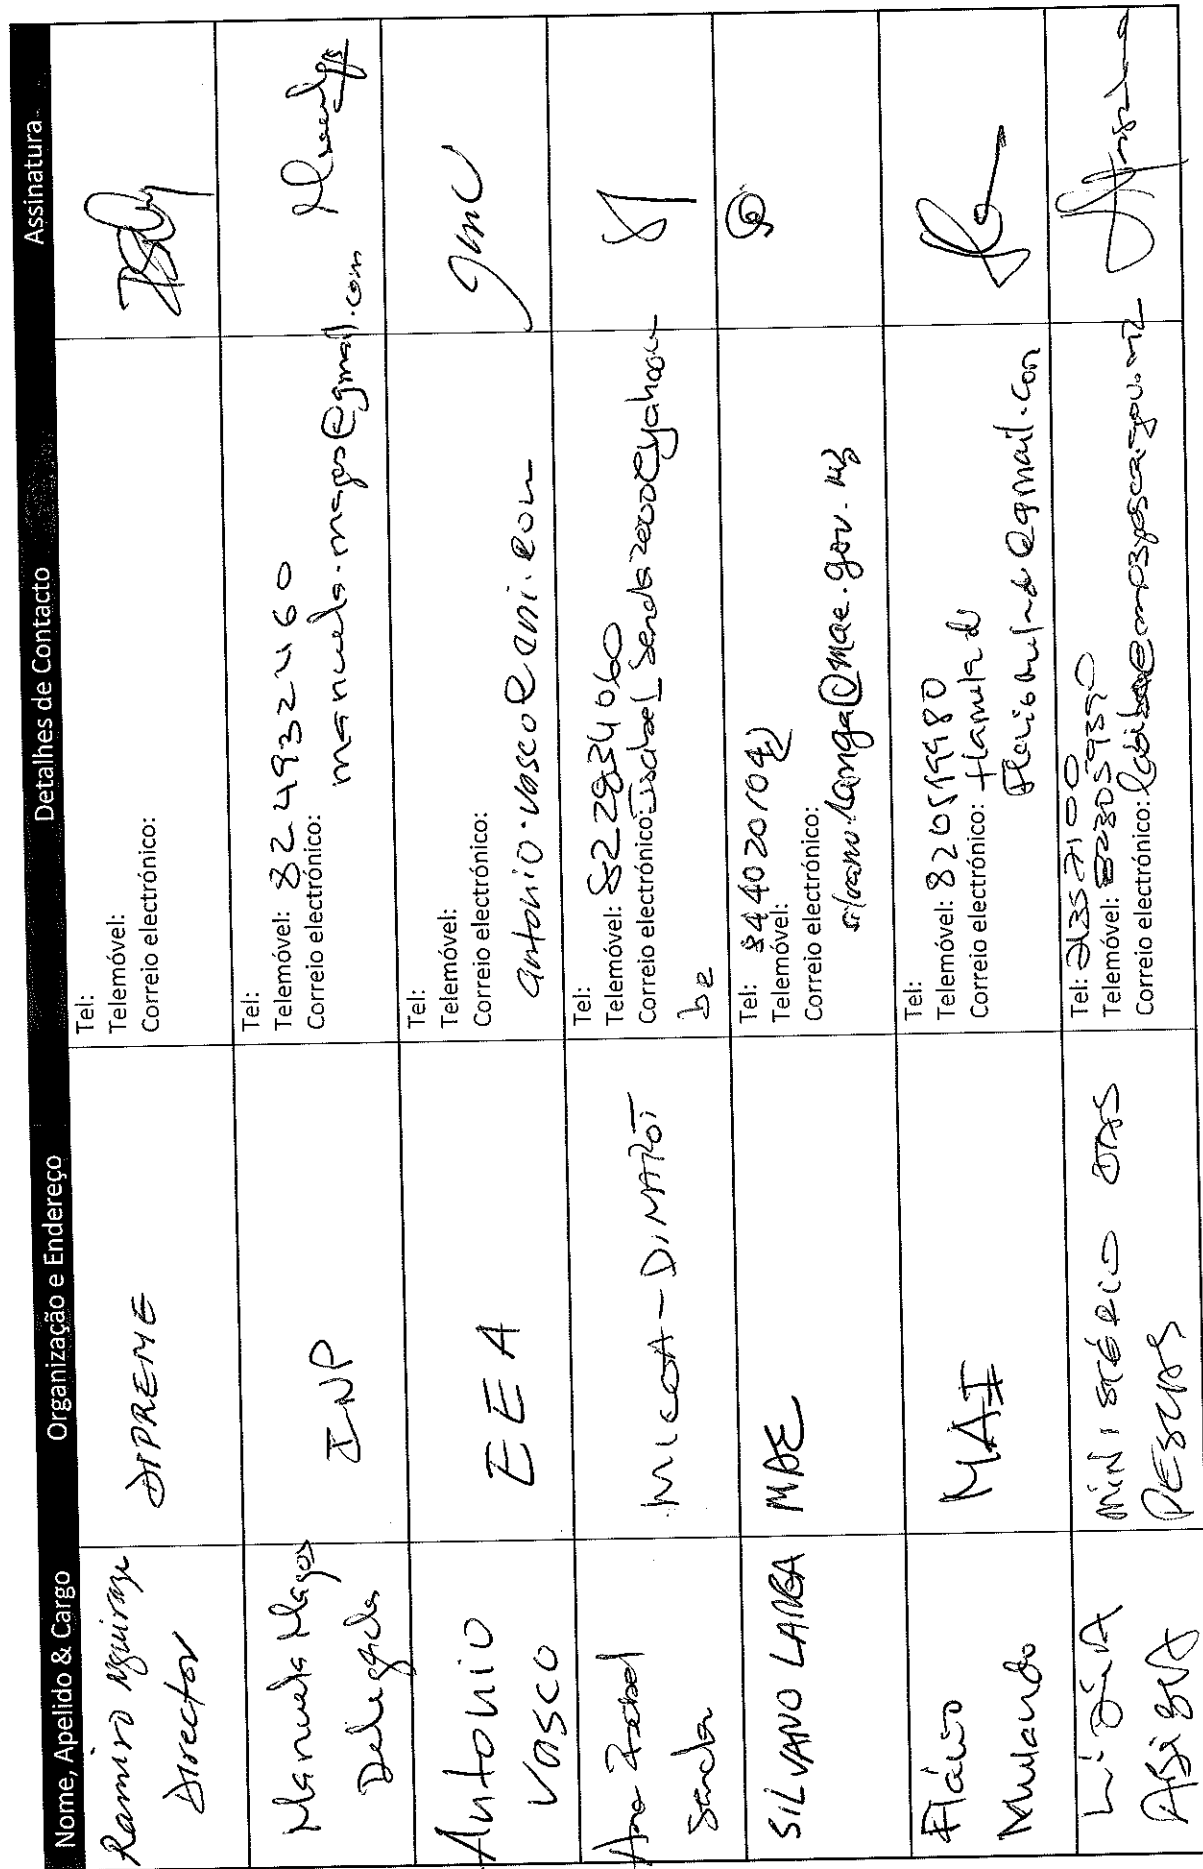 Nome, Apelido & Cargo Organização e Endereço Detalhes de Contacto Assinatura
Ramiro Nguiraze
Director
DIPREME
Tel:
Telemóvel:
Correio electrónico:
Manuela Magos
Delegada
INP
Tel:
Telemóvel: 82 4932460
Correio electrónico:
manuela.magos@gmail.com
Antonio
Vasco
EEA
Tel:
Telemóvel:
Correio electrónico:
antonio.vasco@eni.com
Ana Isabel
Senda
MICOA-
Tel:
Telemóvel: 822834060
Correio electrónico:
SILVANO LANGA
MAE
Tel:
844020104
Telemóvel:
Correio electrónico:
silvano.langa@mae.gov.mz
Flávio
Mulando
MAI
Tel:
Telemóvel: 820519980
Correio electrónico:
@gmail.con
Lídia
MINISTÉRIO DAS
PESCAS
Tel: 21357100
Telemóvel:
Correio electrónico: